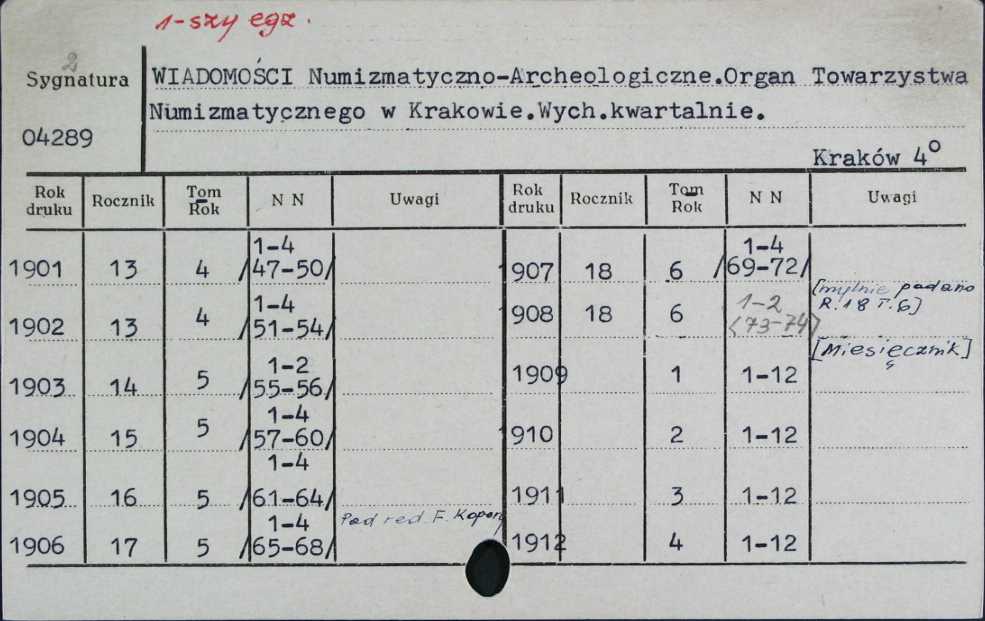 1-szy egz.
2
Sygnatura WIADOMOŚCI Numizmatyczno-Archeologiczne.Organ Towarzystwa
Numizmatycznego w Krakowie.Wych.kwartalnie.
04289
Kraków 4°
Rok druku Rocznik Tom Rok N N Uwagi Rok druku Rocznik Tom Rok N N Uwagi
1901 13 4 1-4 /47-50/ 1907 18 6 1-4 /69-72/
1902 13 4 1-4 /51-54/ 1908 18 6 1-2 (73-74) [mylnie podano R.18 T.6]
1903 14 5 1-2 /55-56/ 1909 1 1-12 [Miesięcznik]
1904 15 5 1-4 /57-60/ 1910 2 1-12
1905 16 5 1-4 /61-64/ 1911 3 1-12
1906 17 5 1-4 /65-68/ Pod red. F. 1912 4 1-12